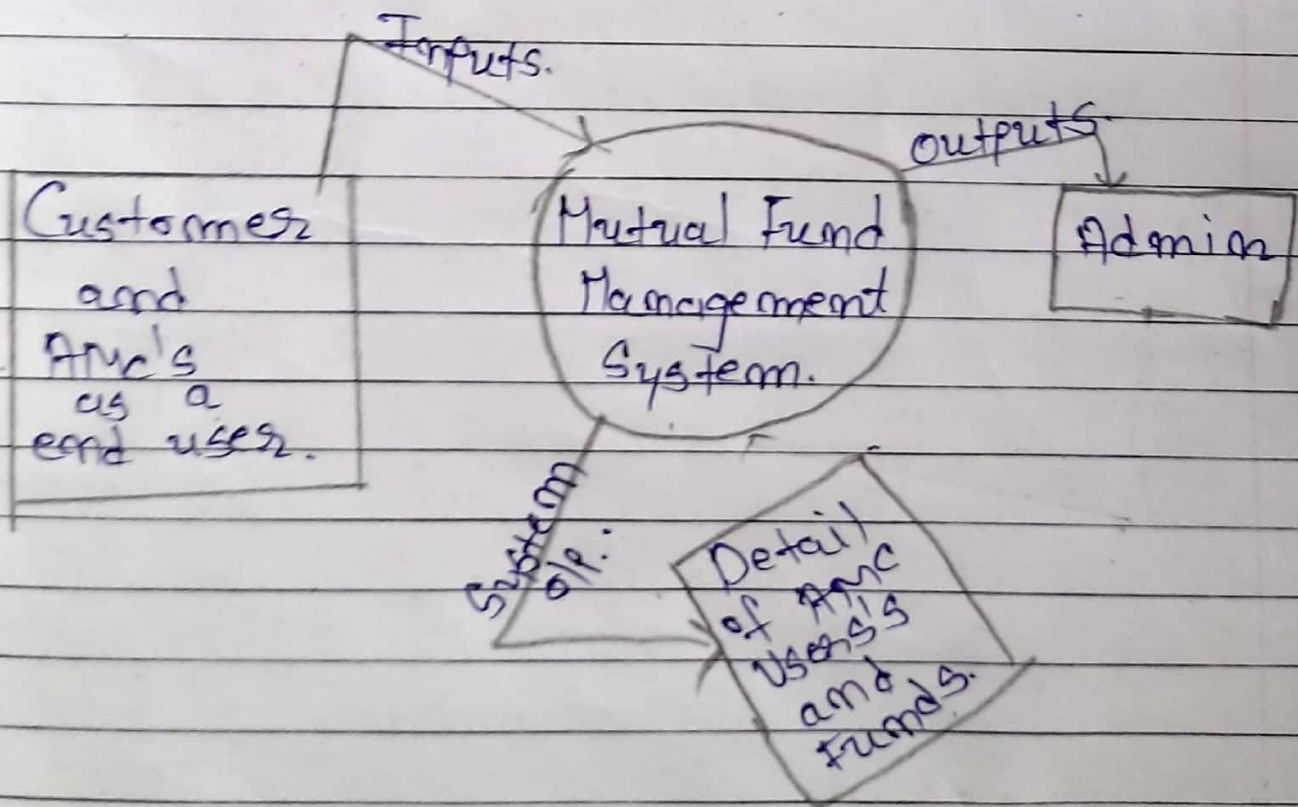 Inputs.
outputs
Customer
and
AMC's
as a
end user.
Mutual Fund
Management
System.
Admin
System
O/P.
Detail
of AMC
Users's
and
Funds.